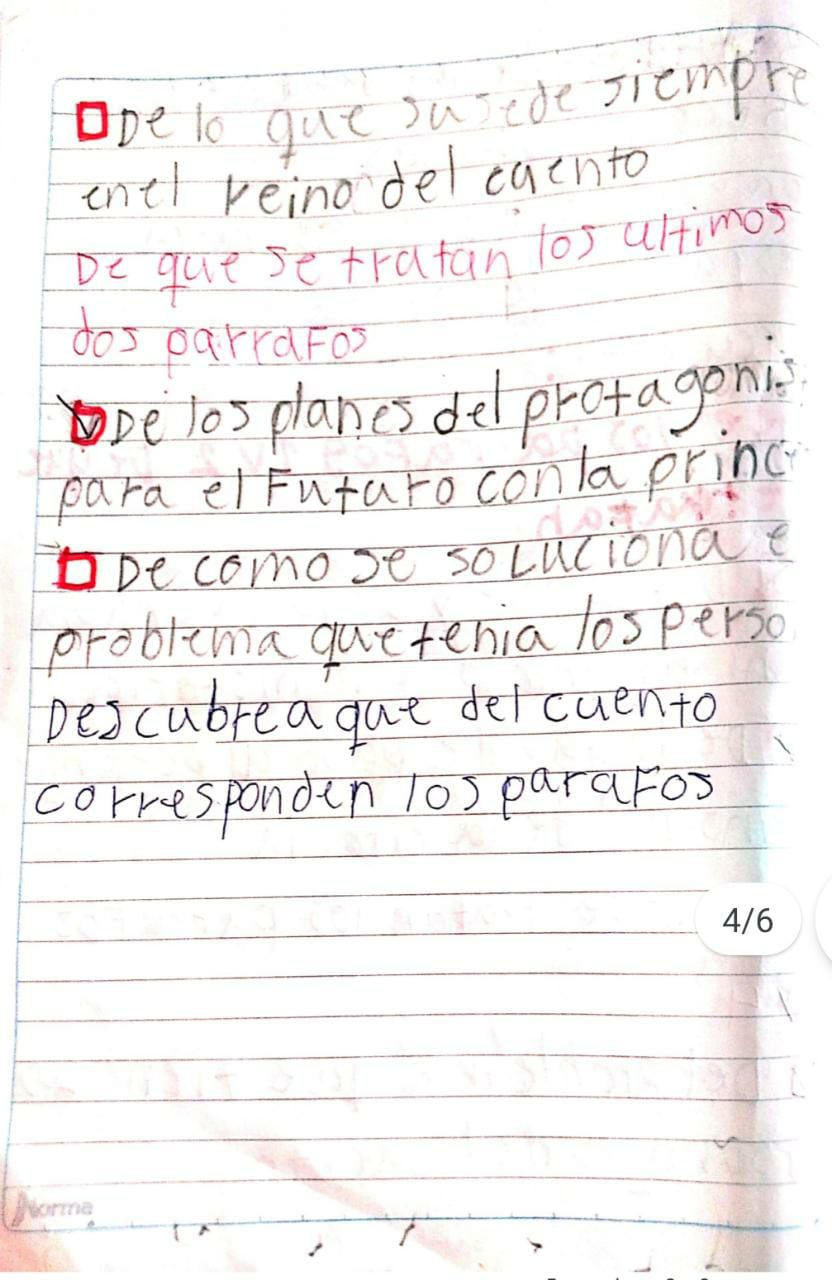 De lo que susede siempre
en el reino del cuento
De que se tratan los ultimos
dos parrafos
De los planes del protagonis
para el Futuro con la princ
De como se soluciona e
problema que tenia los perso
Descubre a que del cuento
corresponden los parafos
4/6
Norma